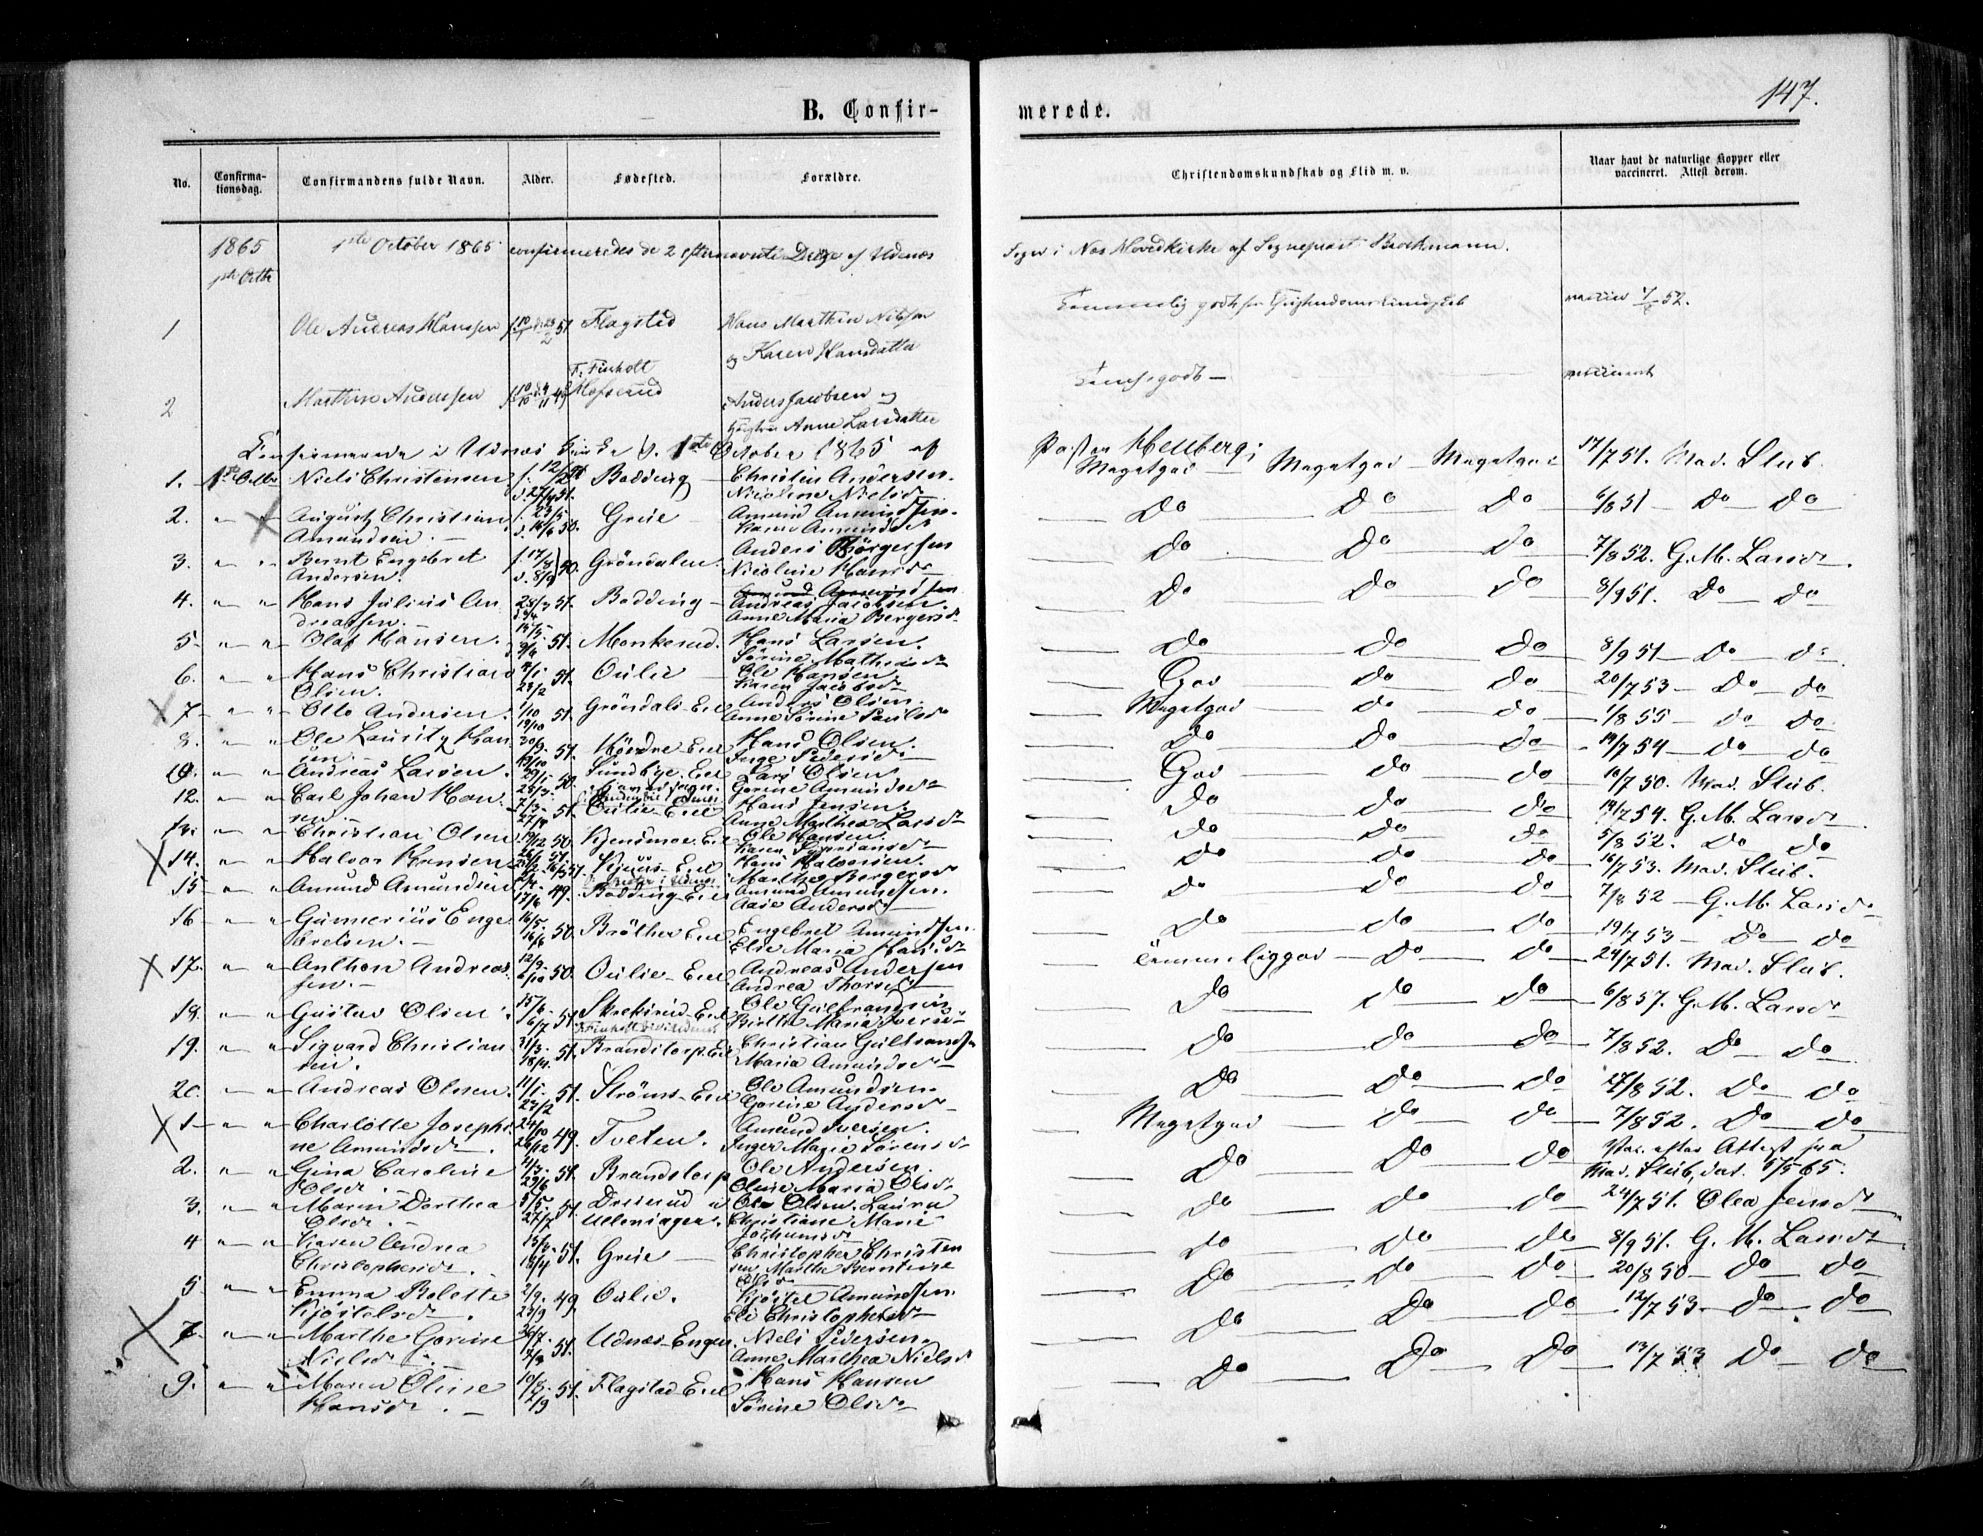 147.
B. Confir- merede.
No. Confirma-tionsdag. Confirmandens fulde Navn. Alder. Fødested. Forældre. Christendomskundskab og Flid m. v. Naar havt de naturlige Kopper eller vaccineret. Attest derom.
1865 1ste October 1865 confirmeredes de 2 efternævnte Drenge af Udenæs Sogn i Næs Hovedkirke af Sognepræst Brochmann.
1ste Octbr
1 Ole Andreas Hanssen 51 Flagstad Hans Marthin Nilssen
og Karen Hansdatter
2 Marthin Anderssen F. Finholt
Anders Jacobsen og
Anne Larsdatter
Confirmerede i Udnæs Kirke d. 1ste October 1865 af Pastor Hellberg;
1. 1ste Octbr Niels Christensen f. 12/2 d. 27/4 51. Bodding Christen Andersen. Nicoline Nielsd. Megetgod Megetgod Megetgod 17/7 51. Mad. Stub.
2. " " August Christian Amundsen. f. 23/5 d. 16/6 50. Grue Amund Amundsen. Karen Amundsd. Do Do Do 6/8 51 Do Do
3. " " Bernt Engebret Andersen. f. 17/8 d. 8/9 50. Gröndalen. Anders Börgersen Nicoline Hansd. Do Do Do 7/8 52. G. M. Larsd.
4. " " Hans Julius Andreassen. 51. Bodding Andreas Jacobsen. Anne Maria Bergersd. Do Do Do 8/9 51. Do Do
5 " " Olaf Hansen. 51. Monkerud. Hans Larsen. Sørine Mathisd. Do Do Do 8/9 51 Do Do
6. " " Hans Christian Olsen. 23/2 51. Oulie Ole Hansen Karen Jacobsd. God Do Do 20/7 53 Do Do
7 " " Otto Andersen. 1/10 19/10 51. Gröndals Eie Anders Olsen. Anne Sörine Paulsd. Megetgod Do Do 1/8 55 Do Do
8. " " Ole Lauritz Hansen. 51. Hans Olsen. Inge Pedersd. Do Do Do 19/7 54 Do Do
" " Andreas Larsen. 50. Sundbye-Eie Lars Olsen Gorine Amundsd. God Do Do 10/7 50. Mad. Stub.
12. " " Carl Johan Hansen 51. Oulie Eie Hans Jensen. Anne Marthea Larsd. Do Do Do 19/7 54. G. M. Larsd.
13. " " Christian Olsen 50. Kjensmoe-Eie Ole Hansen. Do Do Do 5/8 52. Do Do
14. " " Halvor Hansen 51. Hans Halvorsen. Marthe Bergersd. Do Do Do 16/7 53. Mad. Stub.
15 " " Amund Amundsen 17/6 49. Bodding-Eie Amund Amundsen. Aase Andersd. Do Do Do 7/8 52 G. M. Larsd.
16 " " Gunnerius Engebretsen. 16/5 16/6 50. Bröther Eie. Engebret Amundsen. Elie Maria Hansd. Do Do Do 19/7 53 Do Do
17. " " Anthon Andreassen. 12/9 50. Oulie-Eie Andreas Andersen Andrea Thorsd. Temmeliggod Do Do 24/7 51. Mad. Stub.
18. " " Gustav Olsen 15/6 6/7 51. Skrekrud-Eie Ole Gulbrandsen Birthe Maria Iversd. Do Do Do 6/8 57. G. M. Larsd.
19. " " Sigvard Christiansen. 31/3 18/4 51. Brandstorp. Eie Christian Gulbrandsen Maria Amundsd. Do Do Do 7/8 52. Do Do
20. " " Andreas Olsen 11/1 23/2 51. Ströms-Eie Ole Amundsen. Gorine Andersd. Do Do Do 17/8 52. Do Do
1 " " Charlotte Josephine Amundsd. 24/10 26/12 49. Tveten. Amund Iversen. Inger Marie Sörensd. Megetgod Do Do 7/8 52. Do Do
2. " " Gina Caroline Olsd. 51. Brandstorp Ole Andersen. Oline Maria Olsd. Do Do Do Vac. efter Attest fra Mad. Stub, dat. 5/5 65.
3. " " Maren Dorthea Olsd. 27/7 51. Ole Olsen. Laura Christiane Marie Do Do Do 24/7 51. Olea Jensd.
4 " " Karen Andrea Christophersd. 18/4 51. Grue Christopher Christensen Marthe Berntine Olsd. Do Do Do 8/9 51. G. M. Larsd.
5 " " Emma Bolette Kjöstelsd. 2/9 23/9 49. Oulie. Kjöstel Amundsen Eli Christophersd. Do Do Do 20/8 50 Do Do
7. " " Marthe Gorine Nielsd. 26/7 51. Udnæs-Engen. Niels Pedersen. Anne Marthea Nielsd. Do Do Do 12/7 53 Do Do
9. " " Maren Oline Hansd. 10/8 7/9 51. Flagstad-Eie Hans Hansen Sörine Olsd. Do Do Do 13/7 53 Do Do